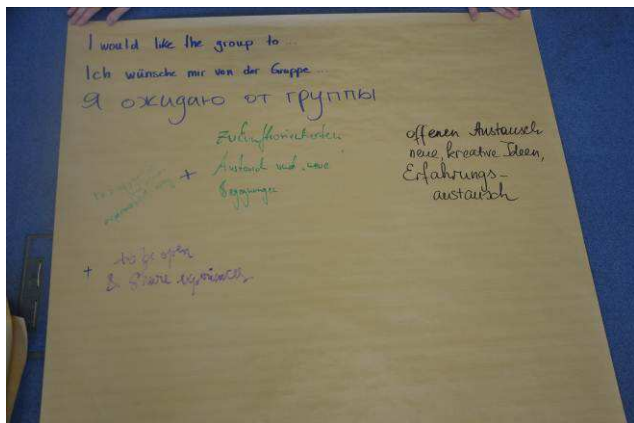 I would like the group to ...
Ich wünsche mir von der Gruppe ...
Я ожидаю от группы
Zukunftsorientierten
Austausch und neue
Begegnungen
offenen Austausch
neue, kreative Ideen,
Erfahrungs-
austausch
+
+ to be open
& share experiences